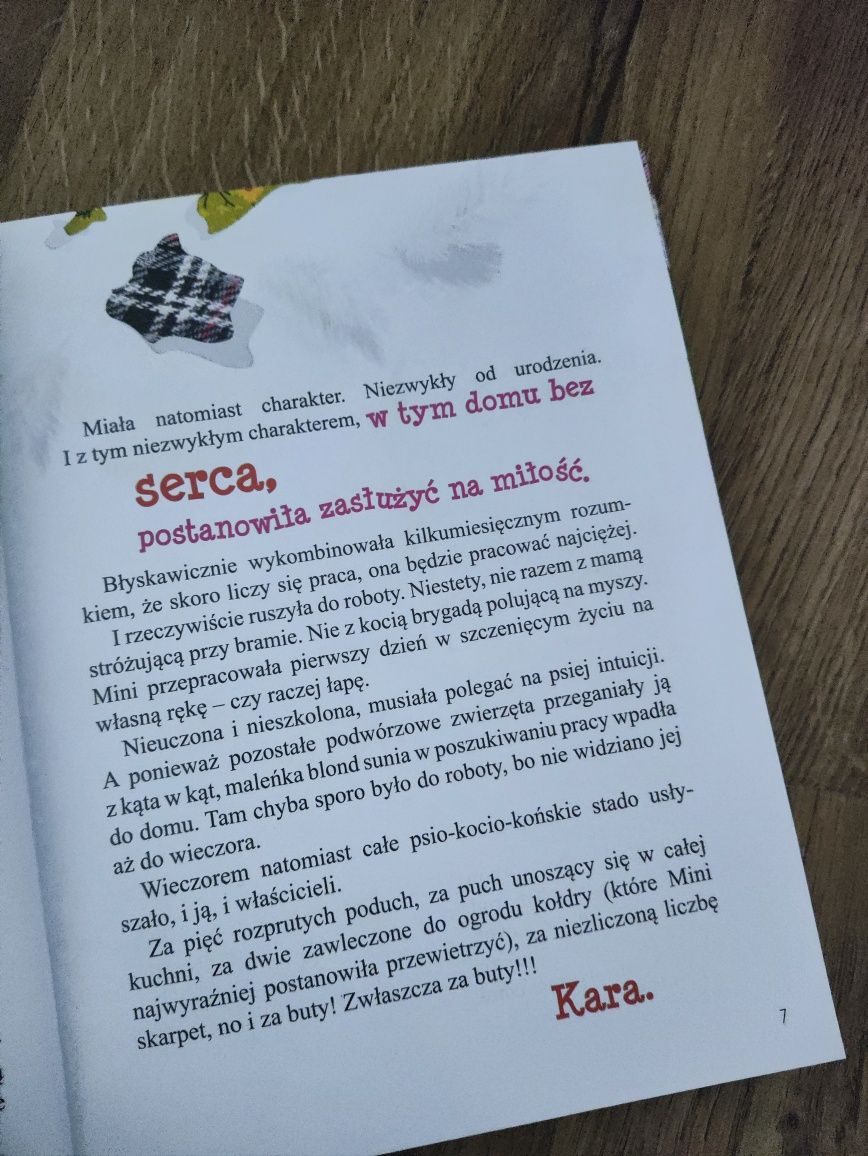 Miała natomiast charakter. Niezwykły od urodzenia.
I z tym niezwykłym charakterem, w tym domu bez
serca,
postanowiła zasłużyć na miłość.
Błyskawicznie wykombinowała kilkumiesięcznym rozum-
kiem, że skoro liczy się praca, ona będzie pracować najciężej.
I rzeczywiście ruszyła do roboty. Niestety, nie razem z mamą
stróżującą przy bramie. Nie z kocią brygadą polującą na myszy.
Mini przepracowała pierwszy dzień w szczenięcym życiu na
własną rękę – czy raczej łapę.
Nieuczona i nieszkolona, musiała polegać na psiej intuicji.
A ponieważ pozostałe podwórzowe zwierzęta przeganiały ją
z kąta w kąt, maleńka blond sunia w poszukiwaniu pracy wpadła
do domu. Tam chyba sporo było do roboty, bo nie widziano jej
aż do wieczora.
Wieczorem natomiast całe psio-kocio-końskie stado usły-
szało, i ją, i właścicieli.
Za pięć rozprutych poduch, za puch unoszący się w całej
kuchni, za dwie zawleczone do ogrodu kołdry (które Mini
najwyraźniej postanowiła przewietrzyć), za niezliczoną liczbę
skarpet, no i za buty! Zwłaszcza za buty!!!
Kara.
7